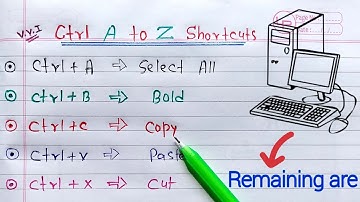 v.v.I Ctrl A to Z Shortcuts
Ctrl + A ⇒ Select All
Ctrl + B ⇒ Bold
Ctrl + C ⇒ Copy
Ctrl + V ⇒ Paste
Ctrl + X ⇒ Cut
Remaining are